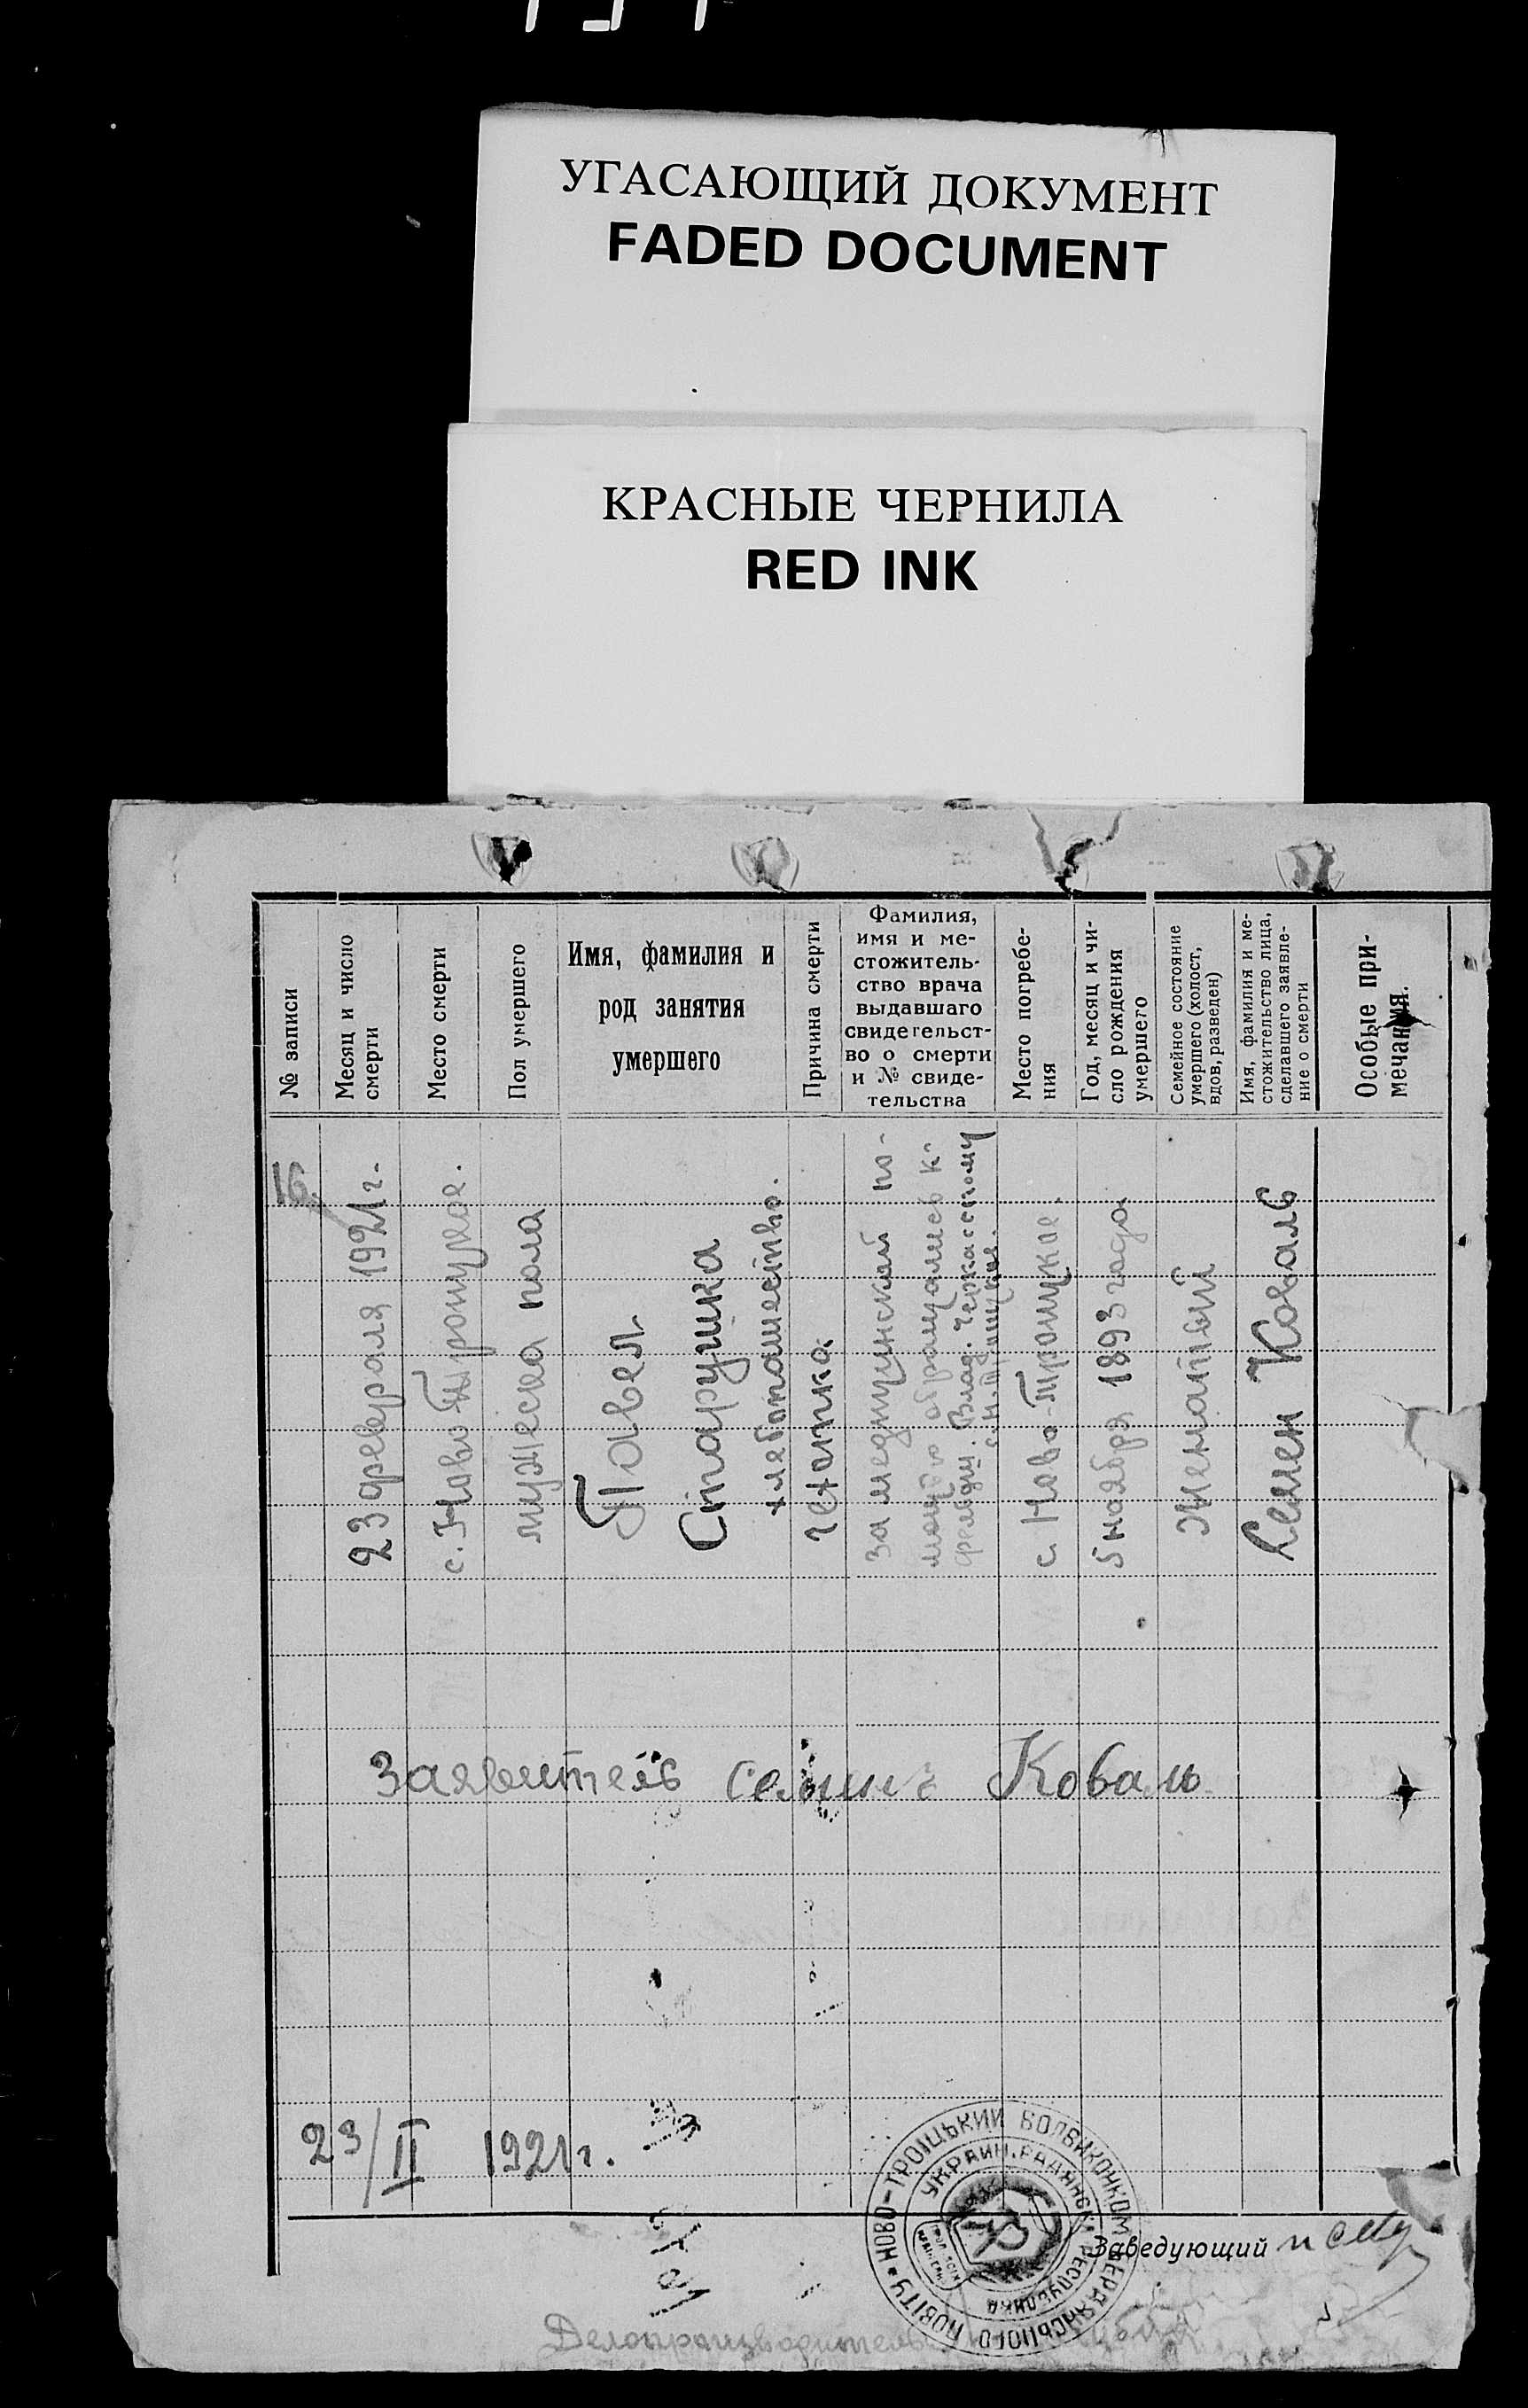 УГАСАЮЩИЙ ДОКУМЕНТ
FADED DOCUMENT
КРАСНЫЕ ЧЕРНИЛА
RED INK
№ записи
Месяц и число
смерти
Место смерти
Пол умершего
Имя, фамилия и
род занятия
умершего
Причина смерти
Фамилия,
имя и ме-
стожитель-
ство врача
выдавшаго
свидетельст-
во о смерти
и № свиде-
тельства
Место погребе-
ния
Год, месяц и чи-
сло рождения
умершего
Семейное состояние
умершего (холост,
вдов, разведен)
Имя, фамилия и ме-
стожительство лица,
сделавшего заявле-
ние о смерти
Особые при-
мечания.
16.
23 февраля 1921 г.
с. Ново Троицкое.
мужеска пола
Павел
Старушка
хлебопашество.
чехотка
за медицинской по-
мощью обращались к
фельдш. Влад. Черкасскому
с. Н. Троицкое.
с. Ново-Троицкое
5 ноября 1893 года.
Женатый
Семен Коваль
Заявитель Семин Коваль
23/II 1921 г.
НОВО-ТРОІЦЬКИЙ ВОЛВИКОНКОМ БЕРДЯНСЬКОГО ПОВІТУ
УКРАИН. РАДЯНСКА РЕСПУБЛИКА
Заведующий
Делопроизводитель